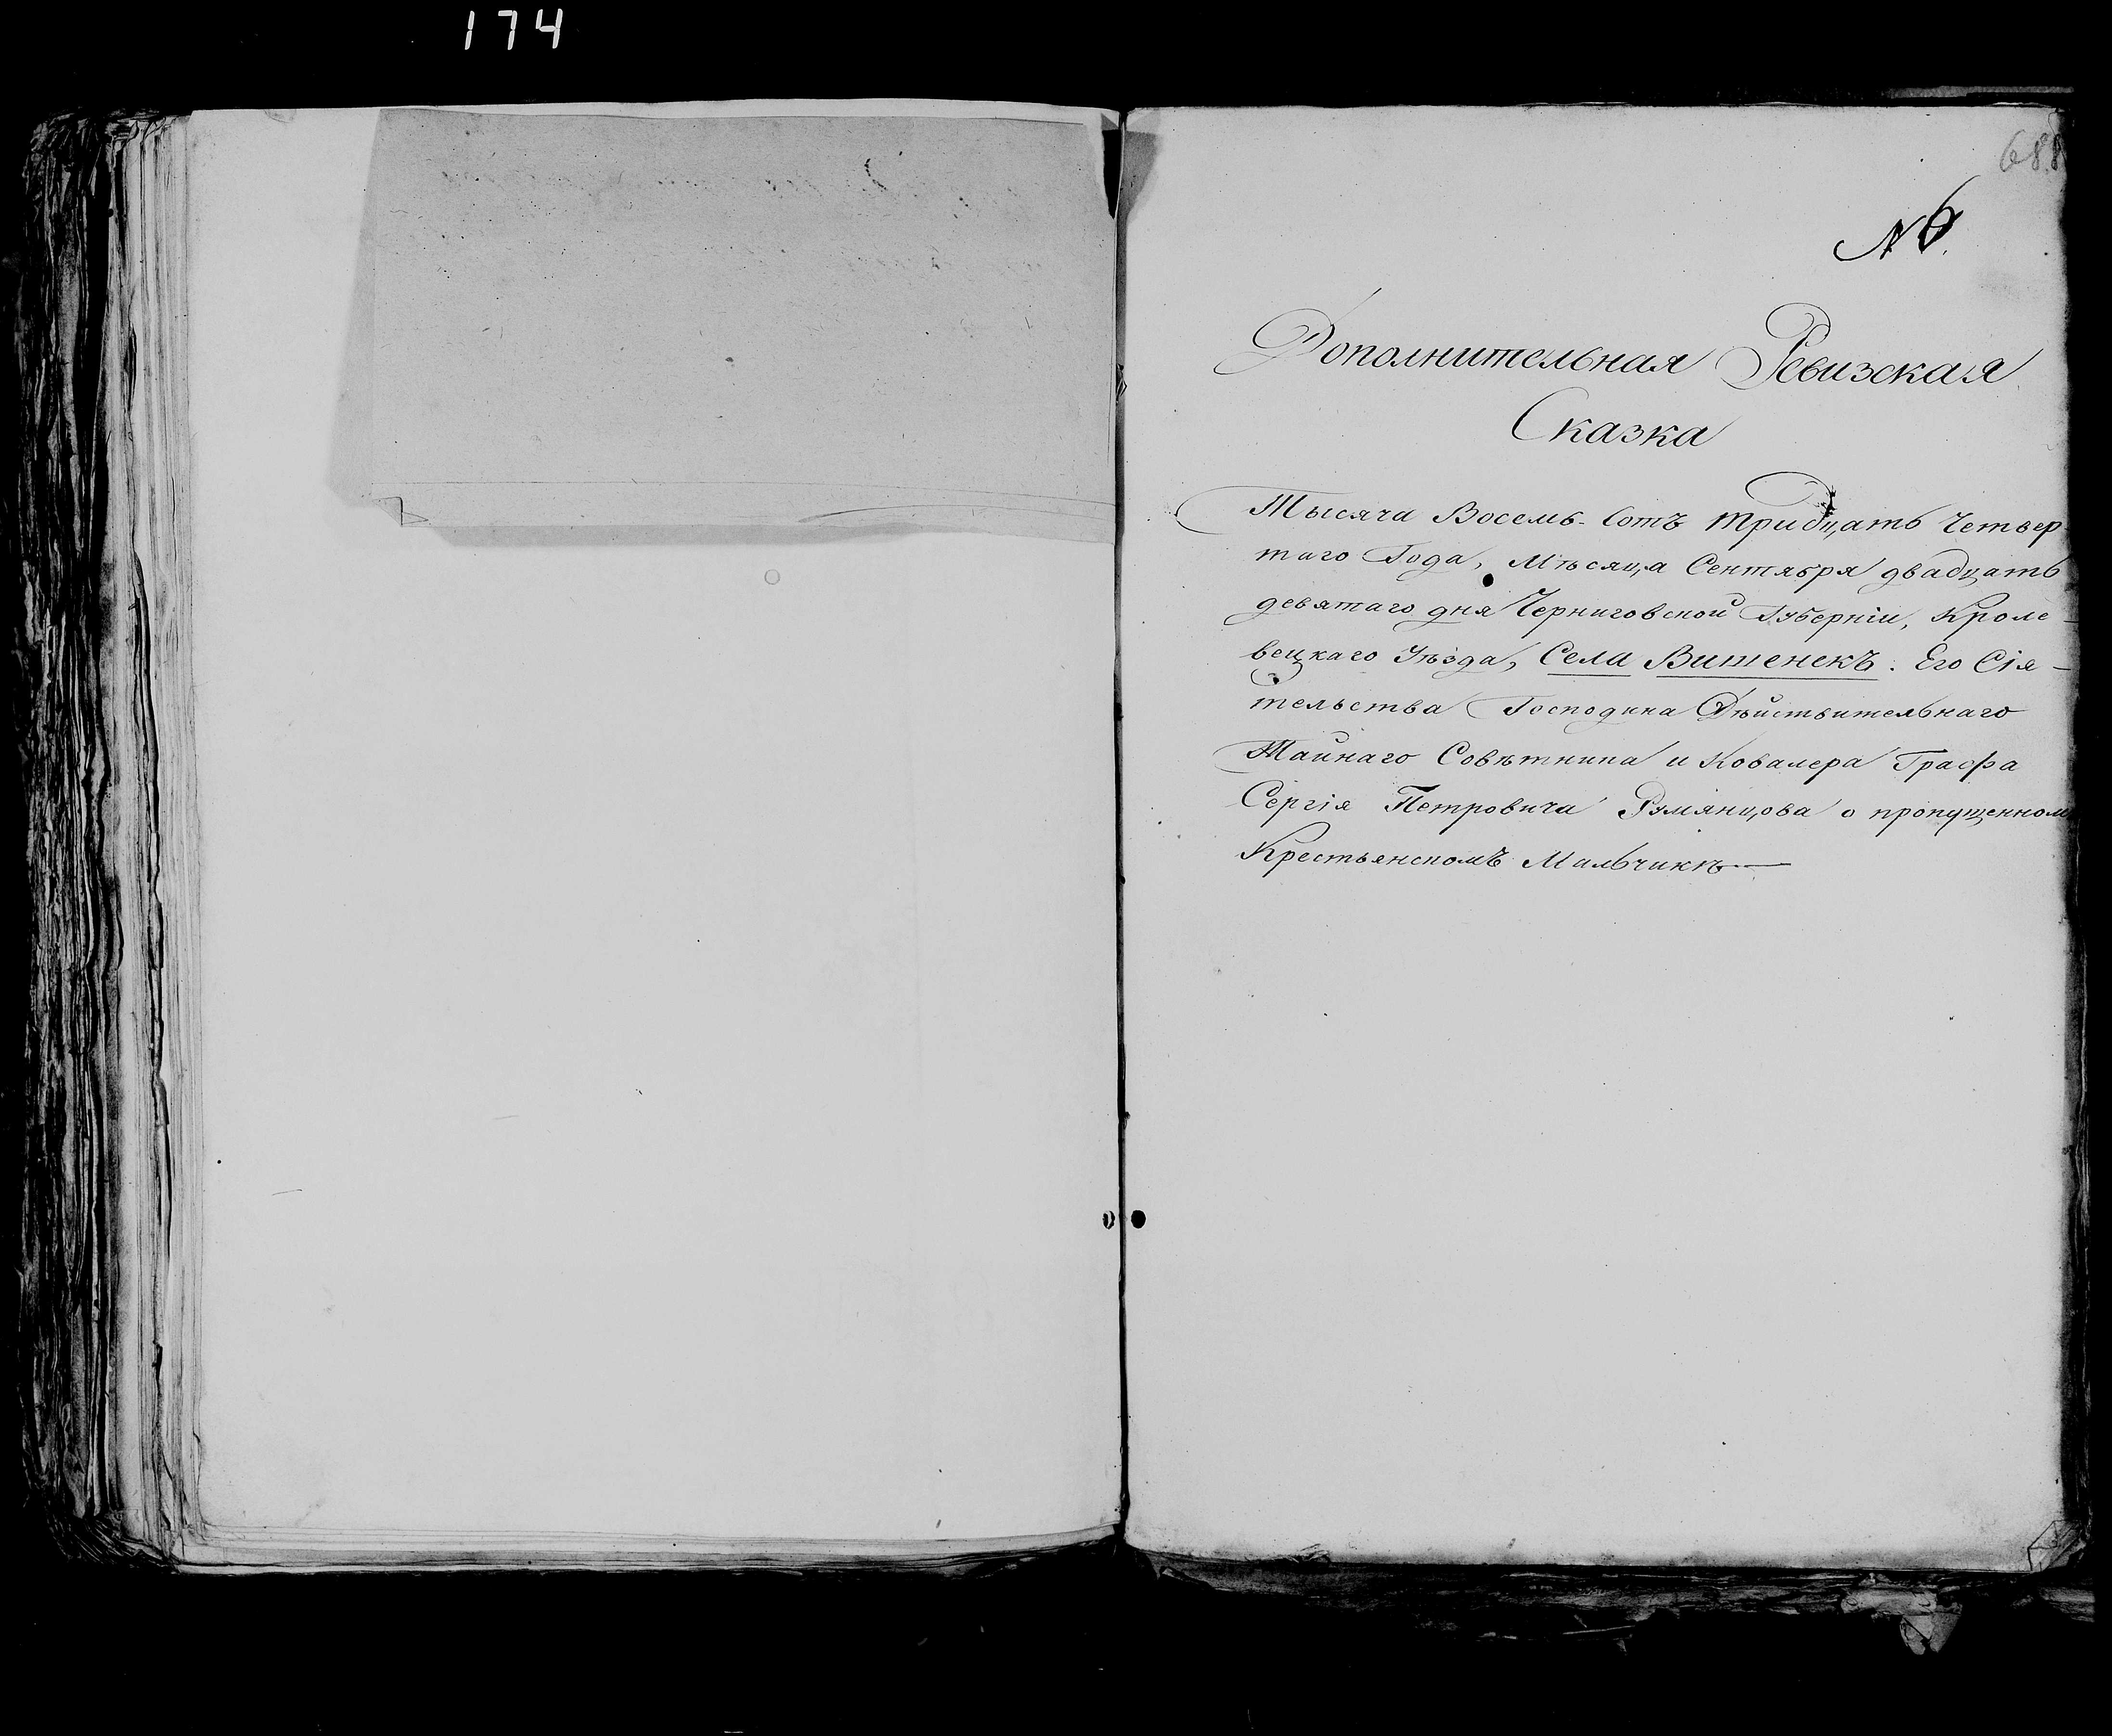 174
688
№ 6.
Дополнительная Ревизская
Сказка
Тысяча Восемь-Сотъ тридцать Четвер
таго Года, Мѣсяца Сентября двадцать
девятаго дня Черниговской Губерніи, Кроле-
вецкаго Уѣзда, Села Вишенекъ. Его Сія-
тельства Господина Дѣйствительнаго
Тайнаго Совѣтника и Ковалера Графа
Сергія Петровича Румянцова о пропущенном
Крестьянскомъ Мальчикѣ